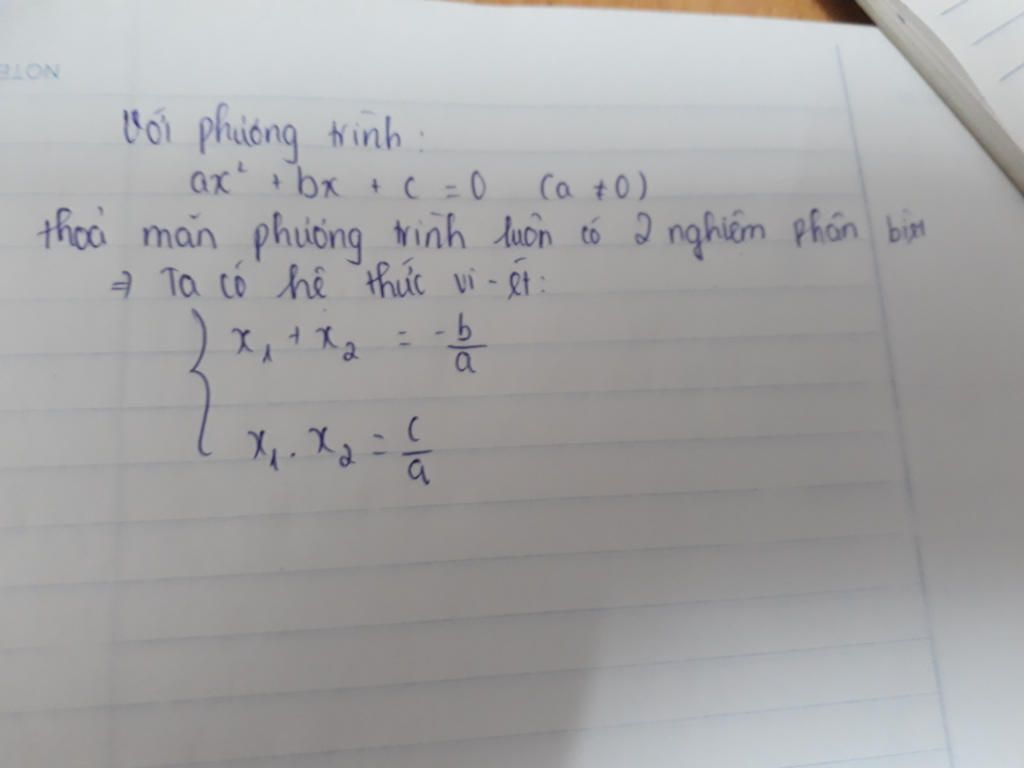 NOTE
Với phương trình:
ax² + bx + c = 0 (a ≠ 0)
thoả mãn phương trình luôn có 2 nghiệm phân biệt
⇒ Ta có hệ thức vi-ét:
{ x₁ + x₂ = -b/a
x₁ . x₂ = c/a